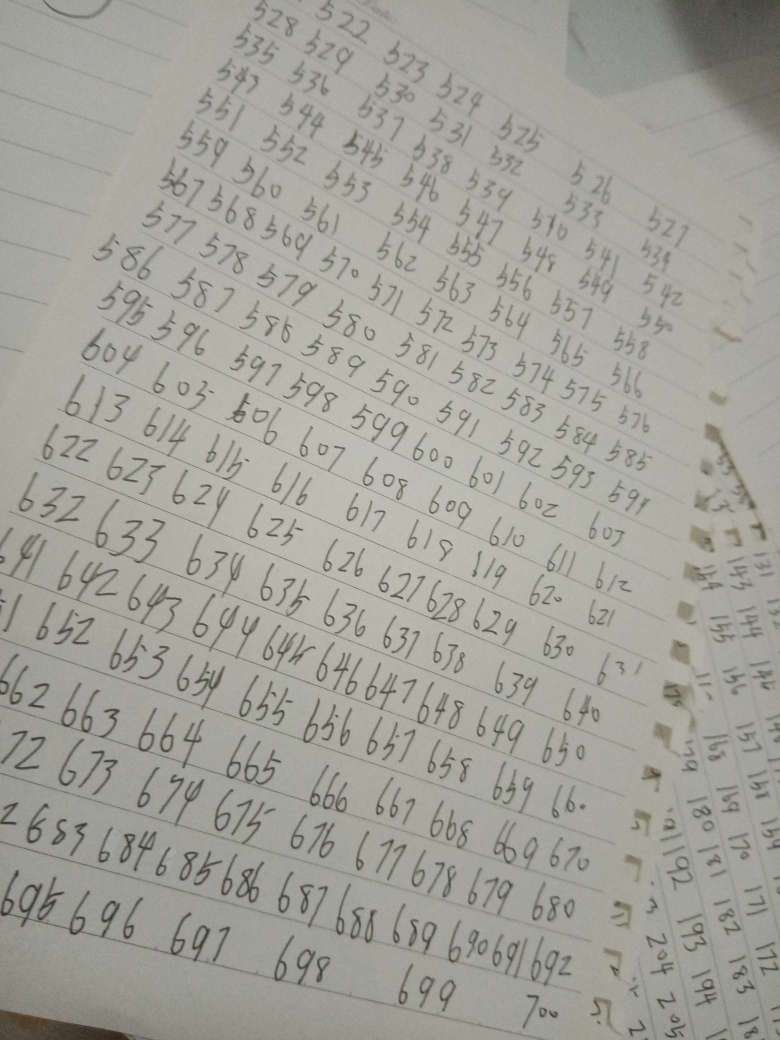 522 523 524 525 526 527
528 529 530 531 532 533 534
535 536 537 538 539 540 541 542
543 544 545 546 547 548 549 550
551 552 553 554 555 556 557 558
559 560 561 562 563 564 565 566
567 568 569 570 571 572 573 574 575 576
577 578 579 580 581 582 583 584 585
586 587 588 589 590 591 592 593 594
595 596 597 598 599 600 601 602 603
604 605 606 607 608 609 610 611 612
613 614 615 616 617 618 819 620 621
622 623 624 625 626 627 628 629 630 631
632 633 634 635 636 637 638 639 640
641 642 643 644 645 646 647 648 649 650
1 652 653 654 655 656 657 658 659 660
662 663 664 665 666 667 668 669 670
72 673 674 675 676 677 678 679 680
2 683 684 685 686 687 688 689 690 691 692
695 696 697 698 699 700
131
143 144 145
154 155 156 157 158 159
168 169 170 171 172
179 180 181 182 183
192 193 194
204 205